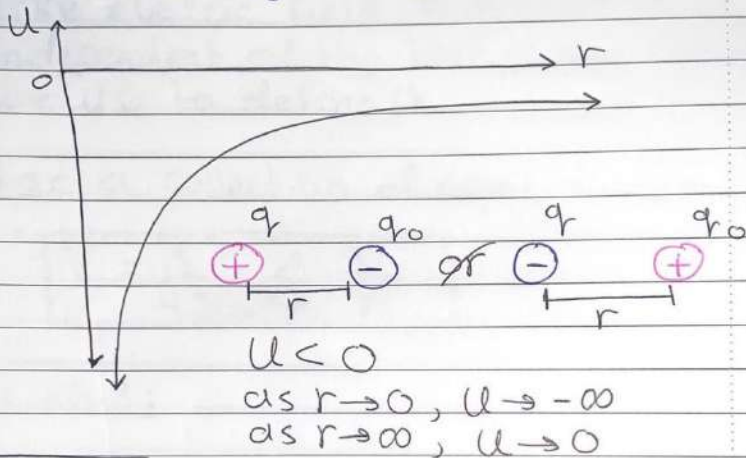 U
r
0
q q₀ or q q₀
+ - - +
r r
U < 0
as r→0, U→-∞
as r→∞, U→0